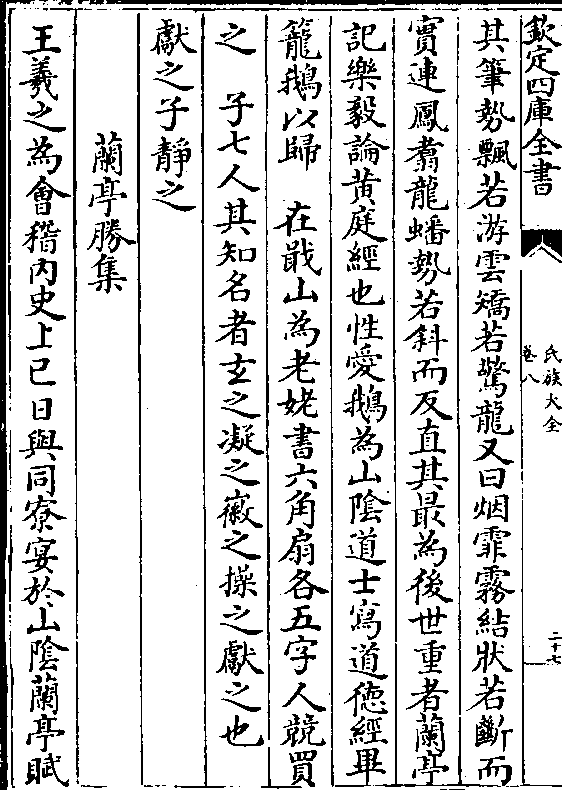 欽定四庫全書
氏族大全
卷八
二十七
其筆勢飄若游雲矯若驚龍又曰烟霏霧結狀若斷而
實連鳳翥龍蟠勢若斜而反直其最為後世重者蘭亭
記樂毅論黄庭經也性愛鵝為山隂道士寫道徳經畢
籠鵝以歸 在蕺山為老姥書六角扇各五字人競買
之 子七人其知名者玄之凝之徽之操之獻之也
獻之子靜之
蘭亭勝集
王羲之為會稽内史上已日與同寮宴於山隂蘭亭賦